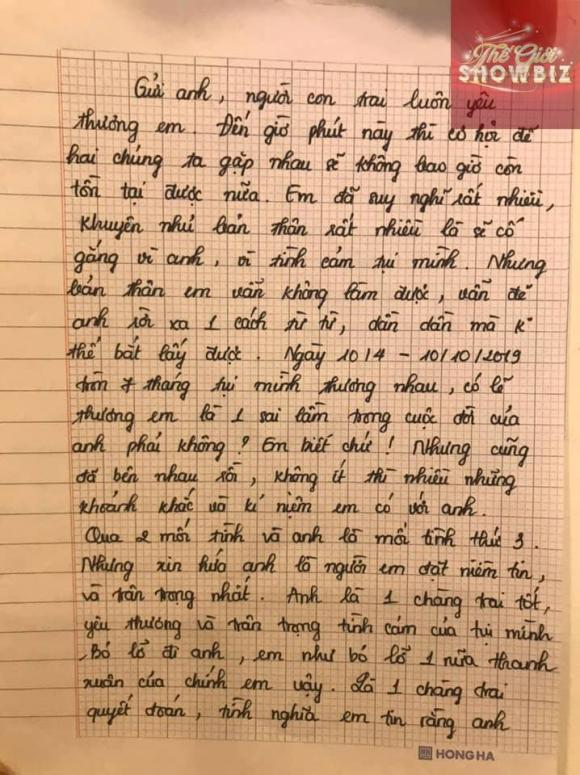 Thế Giới
SHOWBIZ
Gửi anh, người con trai luôn yêu
thương em. Đến giờ phút này thì cơ hội để
hai chúng ta gặp nhau sẽ không bao giờ còn
tồn tại được nữa. Em đã suy nghĩ rất nhiều,
khuyên nhủ bản thân rất nhiều là sẽ cố
gắng vì anh, vì tình cảm tụi mình. Nhưng
bản thân em vẫn không làm được, vẫn để
anh rời xa 1 cách từ từ, dần dần mà k
thể bắt lấy được. Ngày 10/4 - 10/10/2019
tròn 7 tháng tụi mình thương nhau, có lẽ
thương em là 1 sai lầm trong cuộc đời của
anh phải không? Em biết chứ! Nhưng cũng
đã bên nhau rồi, không ít thì nhiều những
khoảnh khắc và kỉ niệm em có với anh.
Qua 2 mối tình và anh là mối tình thứ 3.
Nhưng xin hứa anh là người em đặt niềm tin,
và trân trọng nhất. Anh là 1 chàng trai tốt,
yêu thương và trân trọng tình cảm của tụi mình
Bỏ lỡ đi anh, em như bỏ lỡ 1 nửa thanh
xuân của chính em vậy. Là 1 chàng trai
quyết đoán, tình nghĩa em tin rằng anh
HONG HA